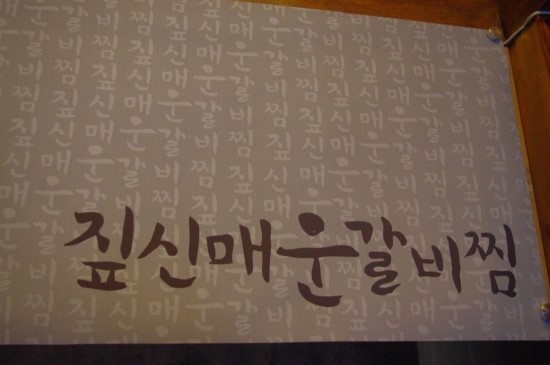 짚신매운갈비찜